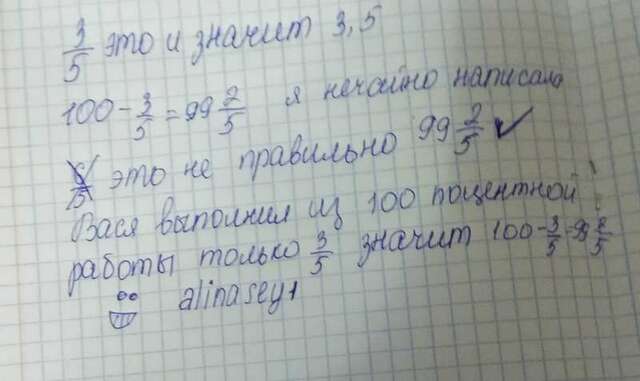 3/5 это и значит 3,5
100 - 3/5 = 99 2/5 я нечайно написала
это не правильно 99 2/5 ✓
Вася выполнил из 100 поцентной
работы только 3/5 значит 100 - 3/5 = 99 2/5
alinasey1